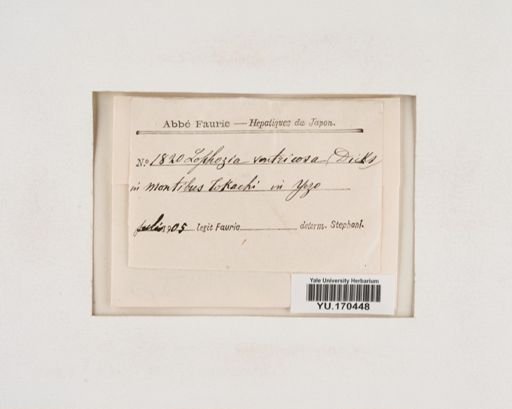 Abbé Faurie — Hepatiques du Japon.
No 1820 Lophozia ventricosa (Dicks)
in montibus Tokachi in Yezo
1905 legit Faurie determ. Stephani.
Yale University Herbarium
YU.170448